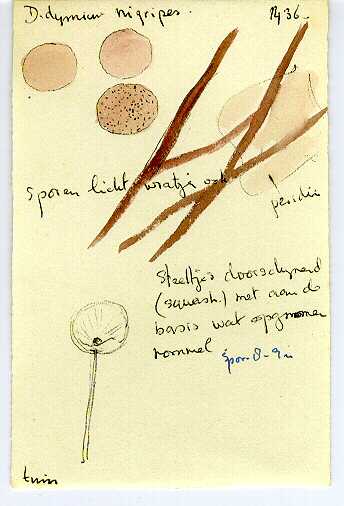 Didymium nigripes.
Sporen licht wratje
peridie
Steeltjes doorschijnend
(squash.) met aan de
basis wat opgenomen
rommel
spor. 8-9
tuin